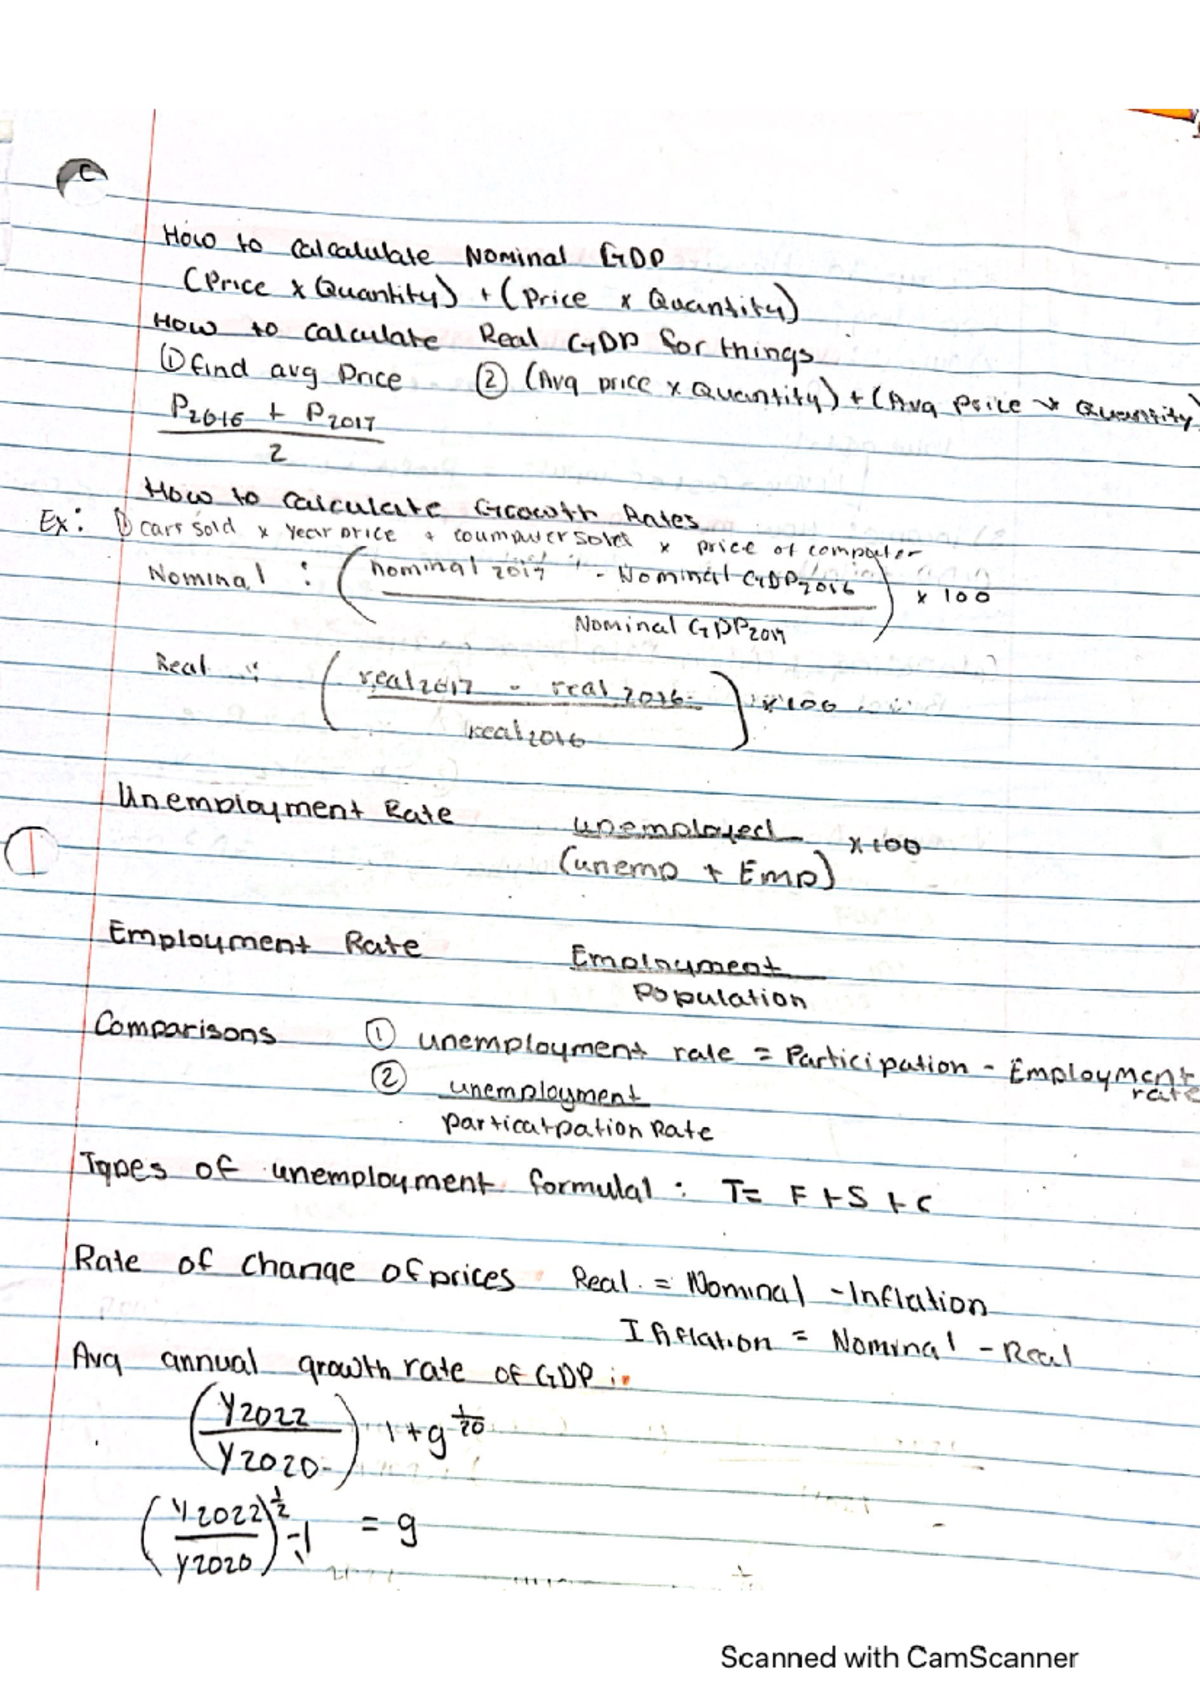 How to calcalulate Nominal GDP
(Price x Quantity) + (Price x Quantity)
How to calculate Real GDP for things
① find avg Price ② (Avg price x Quantity) + (Avg Price x Quantity)
P2016 + P2017
2
How to calculate Growth Rates
Ex: ① cars sold x year price + soles x price of computer
Nominal : ( nominal 2017 - Nominal GDP2016 ) x 100
Nominal GDP2017
Real : ( real 2017 - real 2016 ) x 100
Real 2016
Unemployment Rate unemployed x 100
(unemp + Emp)
①
Employment Rate Employment
Population
Comparisons ① unemployment rate = Participation - Employment rate
② unemployment
particatpation Rate
Types of unemployment formulal : T= F + S + C
Rate of Change of prices Real = Nominal - Inflation
Inflation = Nominal - Real
Avg annual growth rate of GDP :
( Y2022 ) 1+g 1/20
Y2020
( Y2022 ) 1/2 -1 = g
Y2020
Scanned with CamScanner